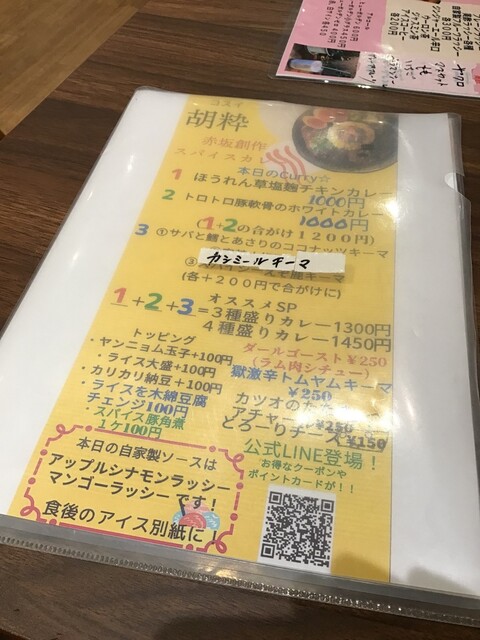 コスイ
胡粋
赤坂創作
スパイスカレ
本日のCurry☆
1 ほうれん草塩麹チキンカレー
1000円
2 トロトロ豚軟骨のホワイトカレー
1000円
(1+2の合がけ1200円)
3 ①サバと鱈とあさりのココナッツキーマ
カシミールキーマ
(各+200円で合がけに)
オススメSP
1+2+3=3種盛りカレー1300円
4種盛りカレー1450円
トッピング
・ヤンニョム玉子+100円
・ライス大盛+100円
・カリカリ納豆+100円
・ライスを木綿豆腐
チェンジ100円
・スパイス豚角煮
1ケ100円
ダールゴースト¥250
(ラム肉シチュー)
獄激辛トムヤムキーマ
¥250
カツオのたた
アチャー ¥250
とろーりチーズ¥150
本日の自家製ソースは
アップルシナモンラッシー
マンゴーラッシーです!
食後のアイス別紙に!
公式LINE登場!
お得なクーポンや
ポイントカードが!!